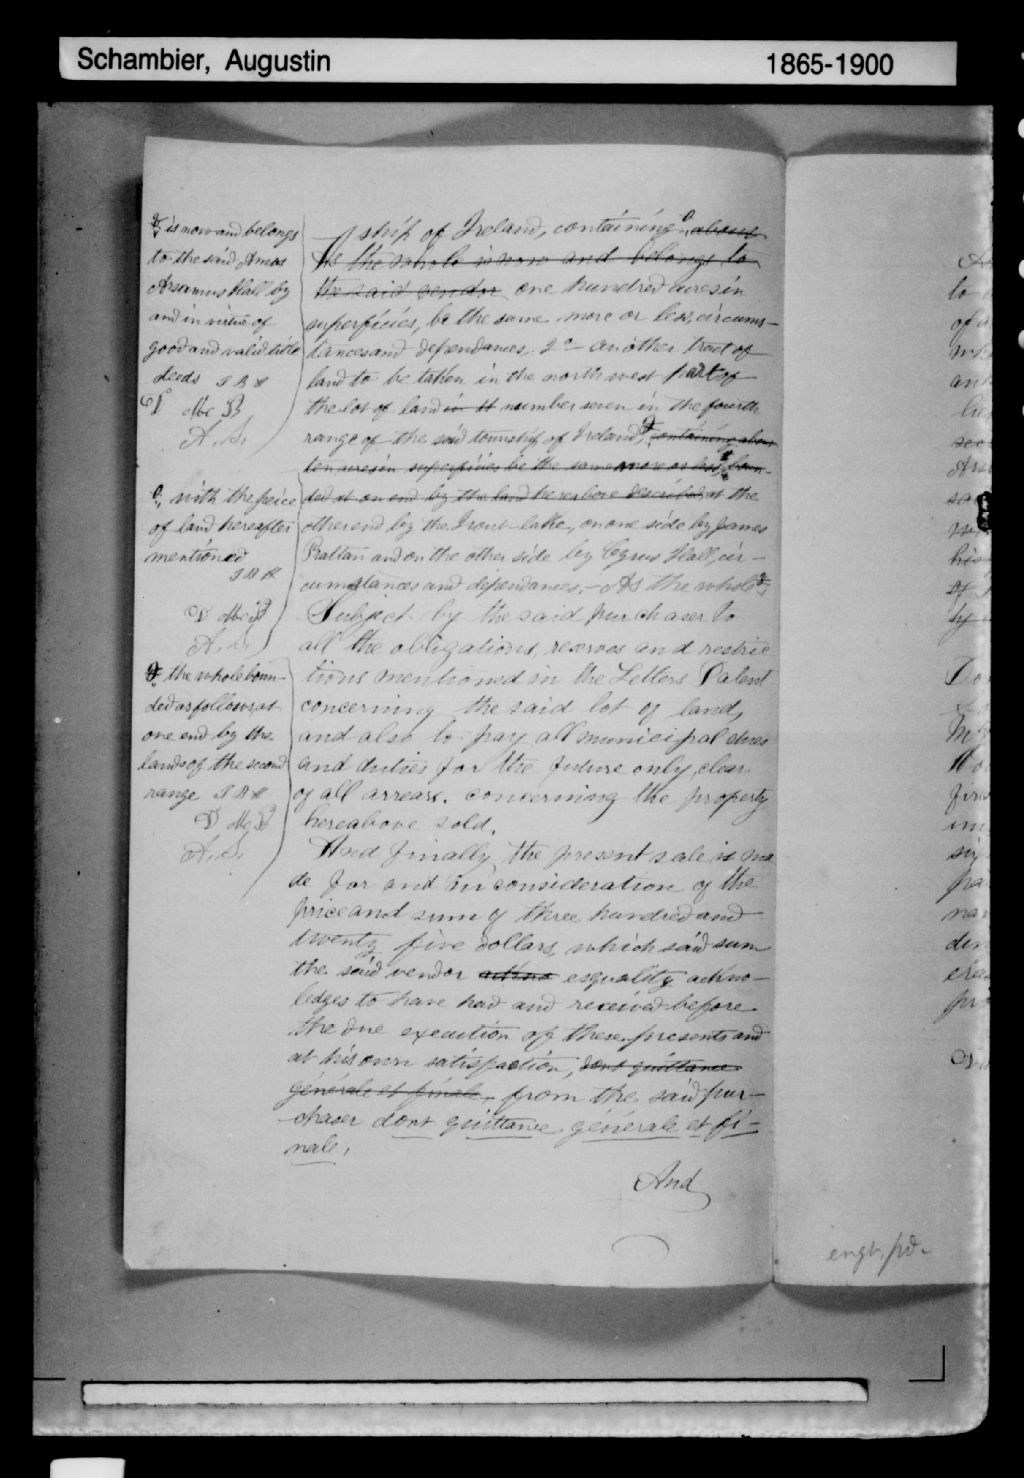 Schambier, Augustin 1865-1900
is now and belongs
to the said Amos
Arsamus Hall by
and in virtue of
good and valid title
deeds
A. S.
with the peice
of land hereafter
mentioned
A. S.
the whole boun-
ded as follows, at
one end by the
lands of the second
range
A. S.
ship of Ireland, containing about
As the whole is now and belongs to
the said vendor one hundred acres in
superficies, be the same more or less, circums-
tances and dependances. 2o another tract of
land to be taken in the north west part of
the lot of land number seven in the fourth
range of the said township of Ireland, containing about
ten acres in superficies be the same more or less, boun-
ded at on end by the land hereabove described, at the
other end by the Trout lake, on one side by James
Rattan and on the other side by Cyrus Hall, cir-
cumstances and dependances. - As the whole
Subject by the said purchaser to
all the obligations, reserves and restric
tions mentioned in the Letters Patent
concerning the said lot of land,
and also to pay all municipal dues
and duties for the future only, clear
of all arrears. concerning the property
hereabove sold.
And finally the present sale is ma
de for and in consideration of the
price and sum of three hundred and
twenty five dollars, which said sum
the said vendor ackno esquality ackno-
ledges to have had and received before
the due execution of these presents and
at his own satisfaction, dont quittance
générale et finale, from the said pur-
chaser dont quittance générale et fi-
nale,
And
engr. pd.